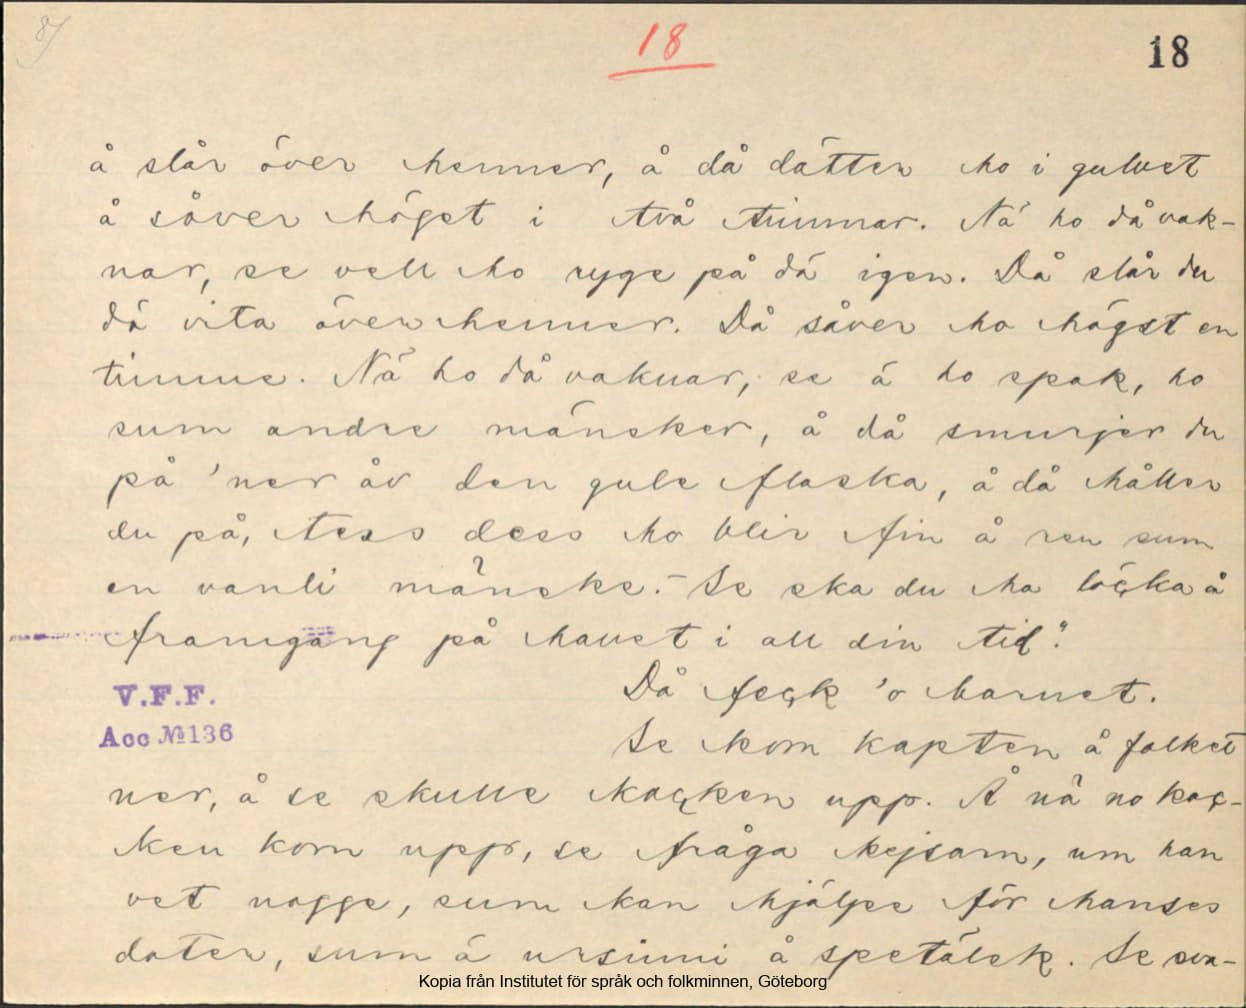 8/
18
18
å slår över henner, å då dätter ho i gulvet
å såver höget i två timmar. Nä ho då vak-
nar, se vell ho ryge på dä igen. Då slår du
dä vita över henner. Då såver ho högst en
timme. Nä ho då vaknar, se ä ho spak, ho
sum andre mänsker, å då smurjer du
på 'ner åv den gule flaska, å då håller
du på, tess dess ho blir fin å ren sum
en vanli mänske. – Se ska du ha löcka å
framgång på havet i all din tid."
V.F.F.
Acc №136
Då feck 'o barnet.
Se kom kapten å folket
ner, å se skulle kocken upp. Å nä no koc-
ken kom upp, se fråga kejsarn, um han
vet nogge, sum kan hjälpe för hanses
doter, sum ä ursinni å spetälsk. Se sva-
Kopia från Institutet för språk och folkminnen, Göteborg